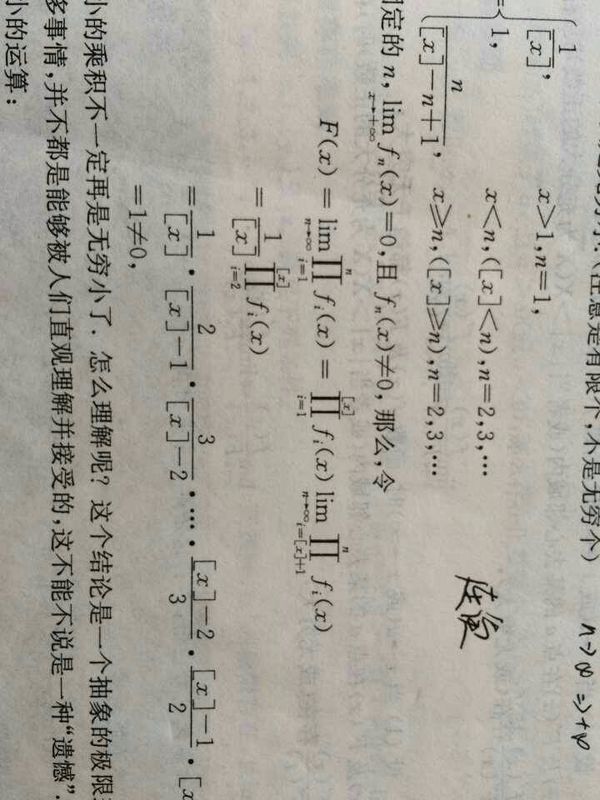 (注意是有限个,不是无穷个)
n→∞ ⇒ +∞
1/[x], x>1,n=1,
= { 1, x<n,([x]<n),n=2,3,…
n/([x]−n+1), x≥n,([x]≥n),n=2,3,…
定的 n, lim_{x→+∞} f_n(x)=0,且 f_n(x)≠0,那么,令
F(x) = lim_{n→∞} ∏_{i=1}^{n} f_i(x) = ∏_{i=1}^{[x]} f_i(x) lim_{n→∞} ∏_{i=[x]+1}^{n} f_i(x)
= 1/[x] ∏_{i=2}^{[x]} f_i(x)
= 1/[x] · 2/([x]−1) · 3/([x]−2) · … · ([x]−2)/3 · ([x]−1)/2 · [x
=1≠0,
小的乘积不一定再是无穷小了. 怎么理解呢? 这个结论是一个抽象的极限
多事情,并不都是能够被人们直观理解并接受的,这不能不说是一种“遗憾”.
小的运算: